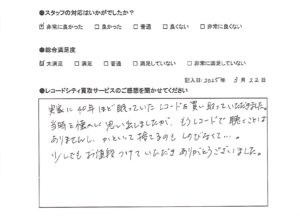 ●スタッフの対応はいかがでしたか?
☑非常に良かった □良かった □普通 □良くない □非常に良くない
●総合満足度
☑大満足 □満足 □普通 □満足していない □非常に満足していない
記入日:2025年 3月22日
●レコードシティ買取サービスのご感想を聞かせてください
実家に40年ほど眠っていたレコードを買い取っていただきました。
当時を懐かしく思い出しましたが、もうレコードで聴くことは
ありませんし、かといって捨てるのもしのびなくて…。
少しでもお値段つけていただきありがとうございました。